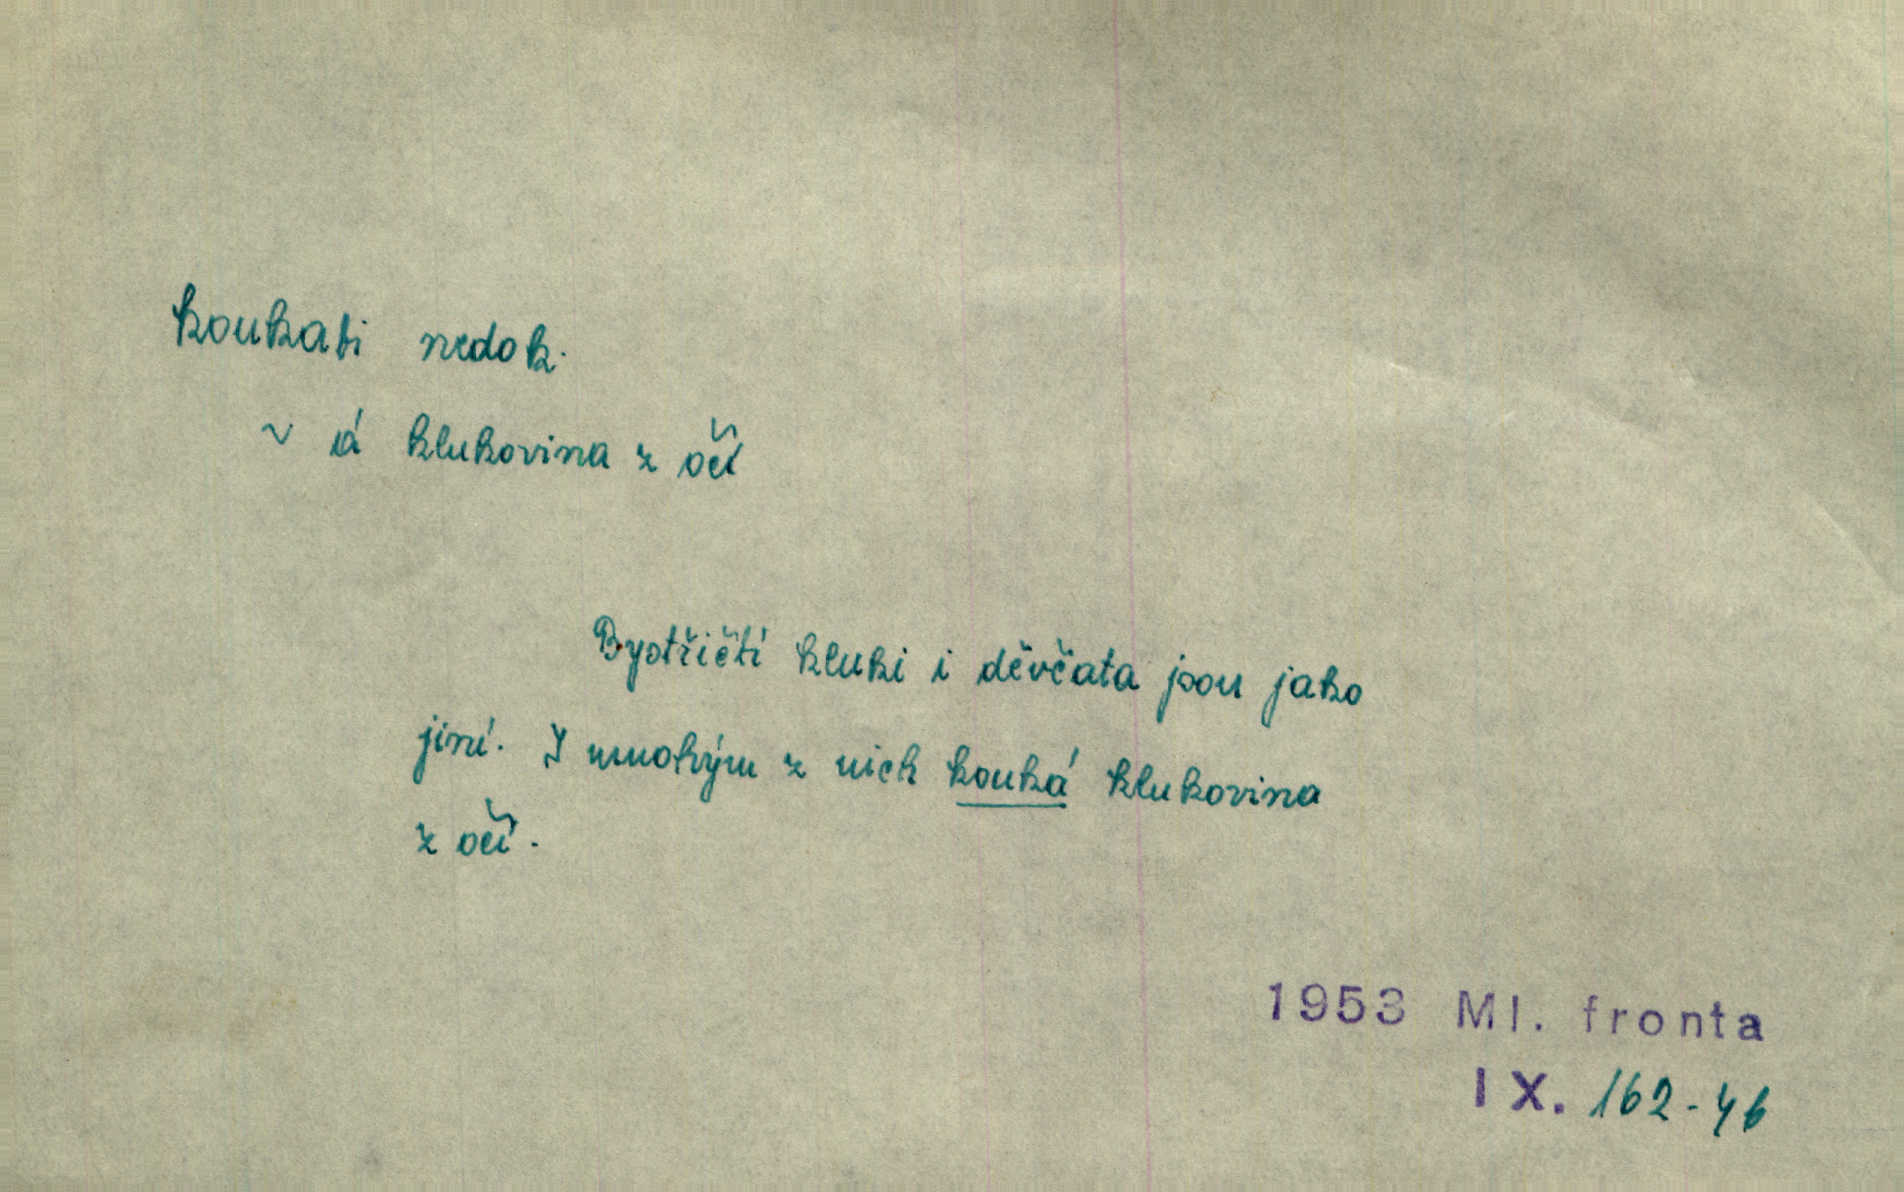 koukati nedok.
~ á klukovina z očí
Bystřičtí kluki i děvčata jsou jako
jiní. I mnohým z nich kouká klukovina
z očí.
1953 Ml. fronta
IX. 162-4b